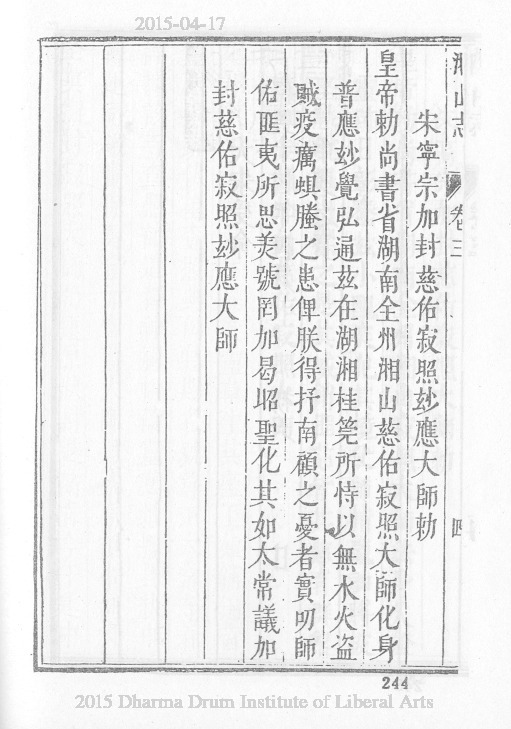 2015-04-17
湘山志 卷三 四
朱寧宗加封慈佑寂照玅應大師勅
皇帝勅尚書省湖南全州湘山慈佑寂照大師化身
普應玅覺弘通玆在湖湘桂筦所恃以無水火盜
賊疫癘蜞螣之患俾朕得抒南顧之憂者實叨師
佑匪夷所思羙號罔加曷昭聖化其如太常議加
封慈佑寂照玅應大師
244
2015 Dharma Drum Institute of Liberal Arts